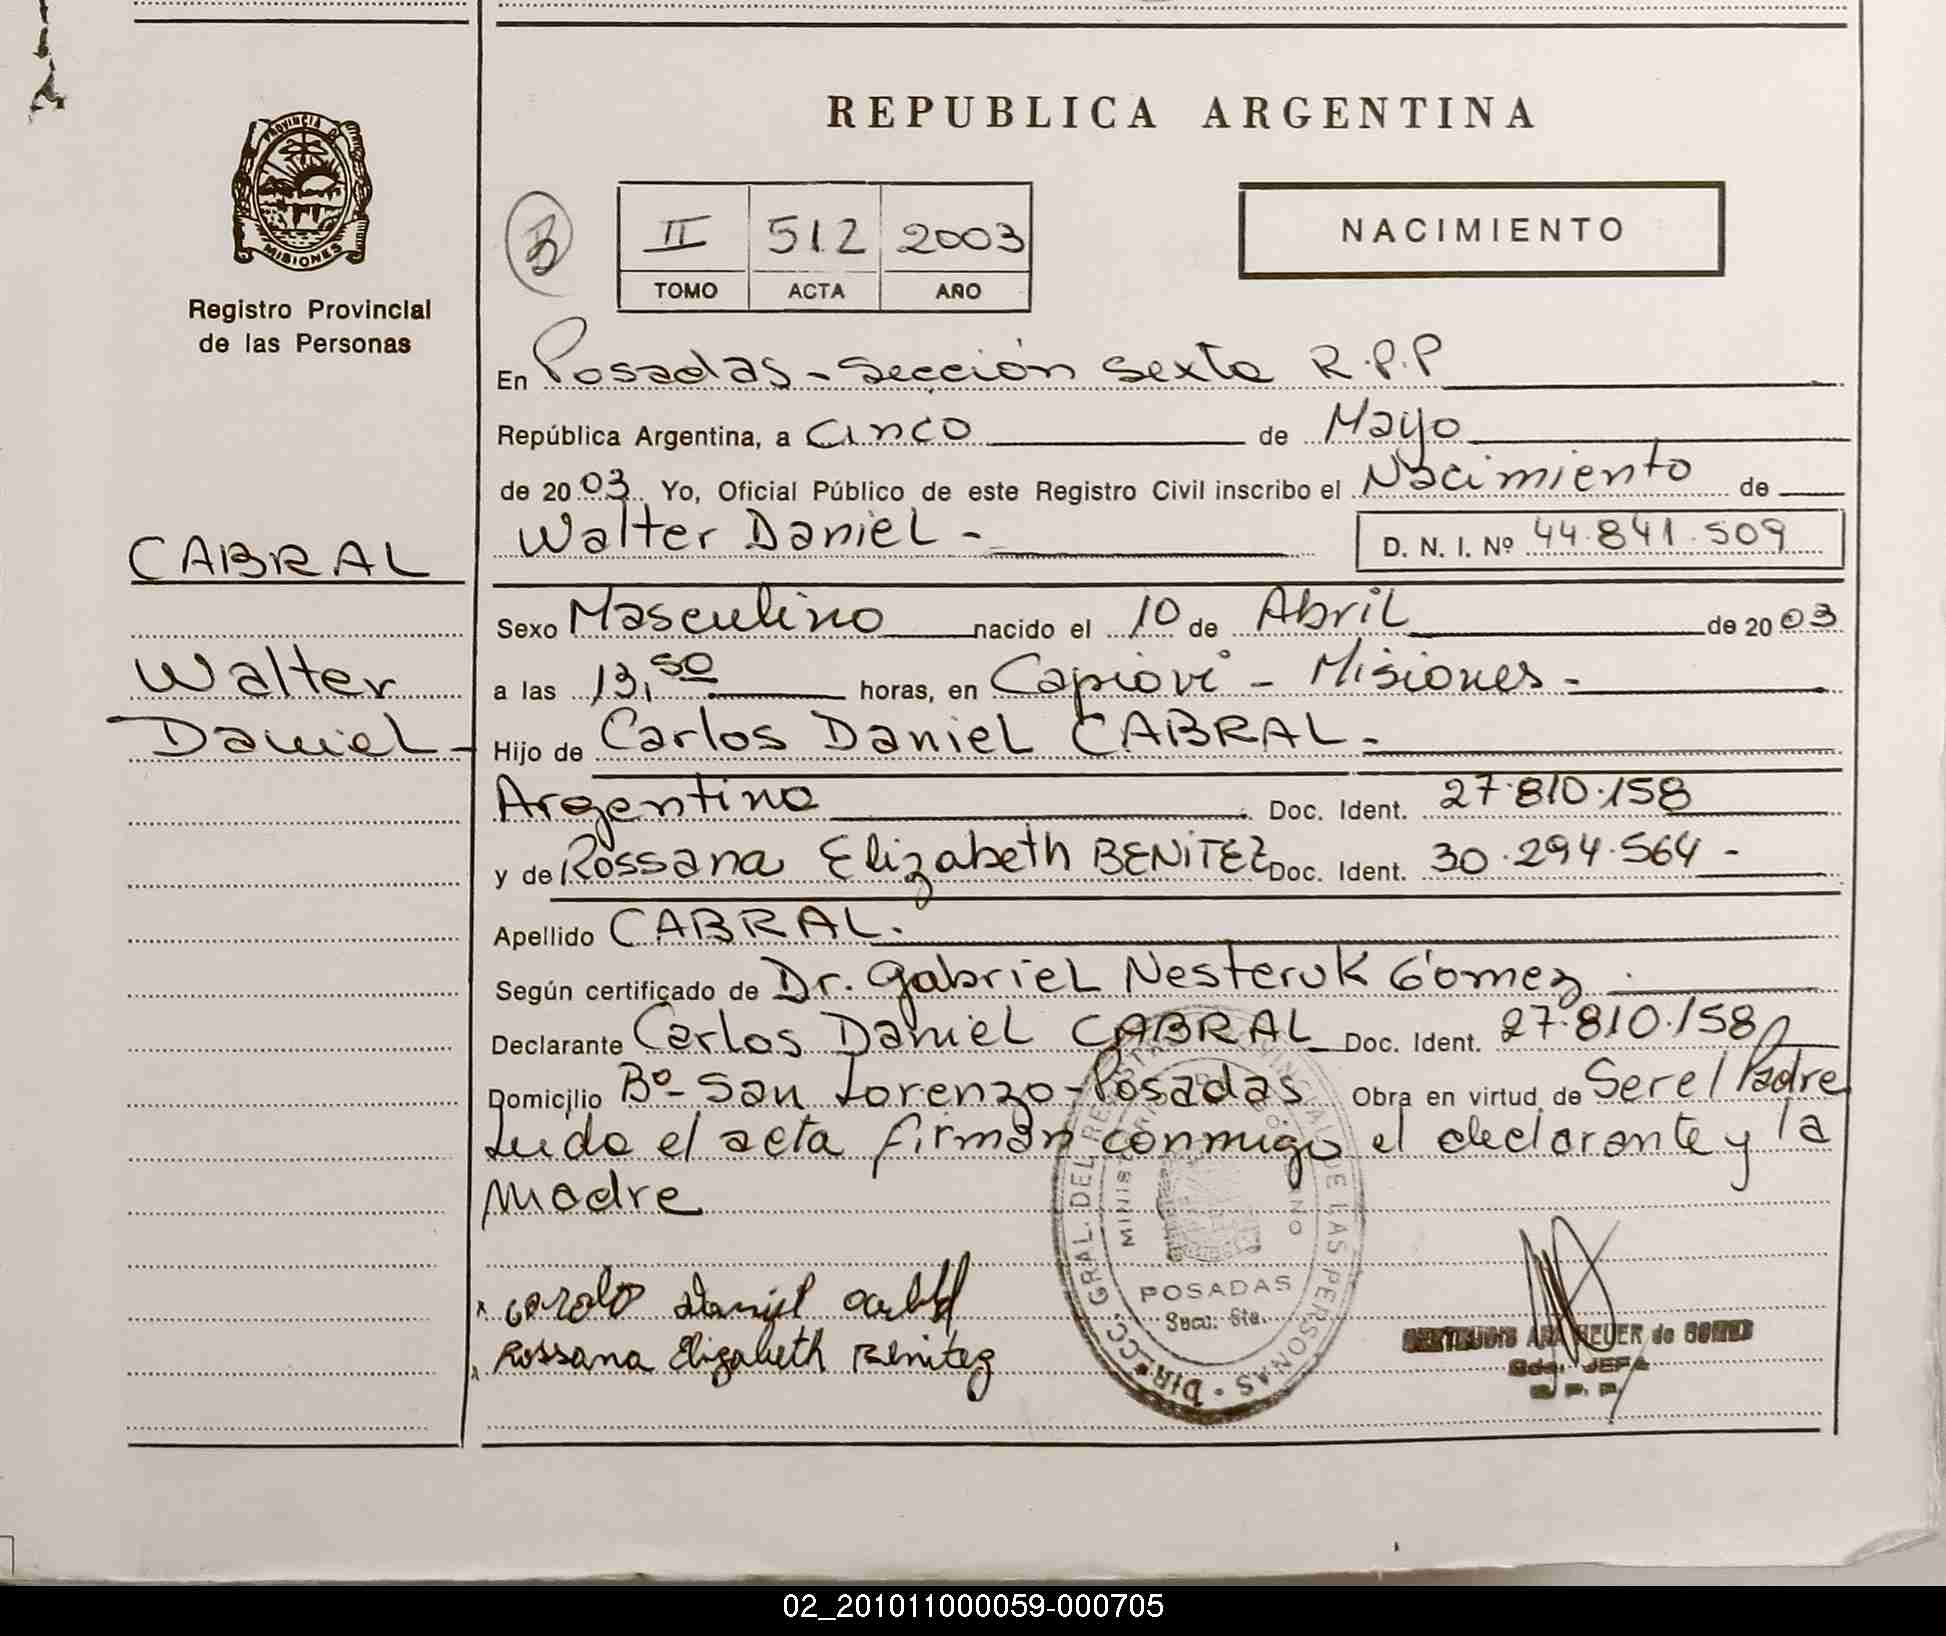 REPUBLICA ARGENTINA
PROVINCIA DE
MISIONES
Registro Provincial
de las Personas
II 512 2003
TOMO ACTA AÑO
NACIMIENTO
En Posadas - Sección Sexta R.P.P
República Argentina, a Cinco de Mayo
de 2003 Yo, Oficial Público de este Registro Civil inscribo el Nacimiento de
Walter Daniel -
D. N. I. Nº 44.841.509
CABRAL
Walter
Daniel -
Sexo Masculino nacido el 10 de Abril de 2003
a las 13,50 horas, en Capioví - Misiones -
Hijo de Carlos Daniel CABRAL -
Argentino Doc. Ident. 27.810.158
y de Rossana Elizabeth BENITEZ Doc. Ident. 30.294.564 -
Apellido CABRAL.
Según certificado de Dr. Gabriel Nesteruk Gomez
Declarante Carlos Daniel CABRAL Doc. Ident. 27.810.158
Domicilio Bº San Lorenzo - Posadas Obra en virtud de Ser el Padre
Leido el acta firman conmigo el declarante y la
Madre
Rossana Elizabeth Benitez
POSADAS
Secc. 6ta.
de GOMEZ
JEFA
R. P. P.
02_201011000059-000705